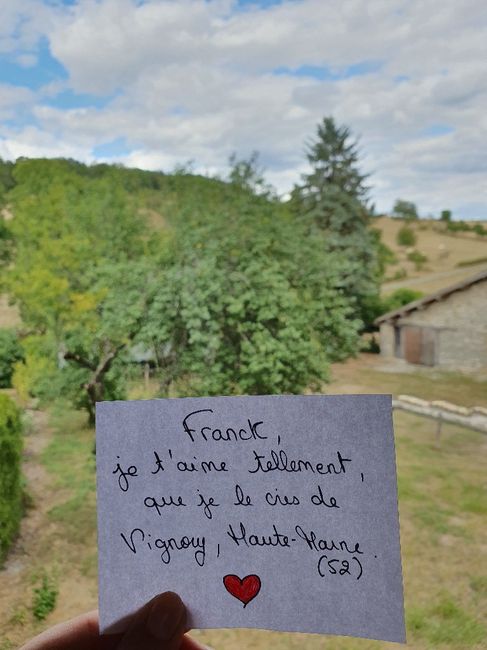 Franck,
je t'aime tellement,
que je le cries de
Vignory, Haute-Marne.
(52)